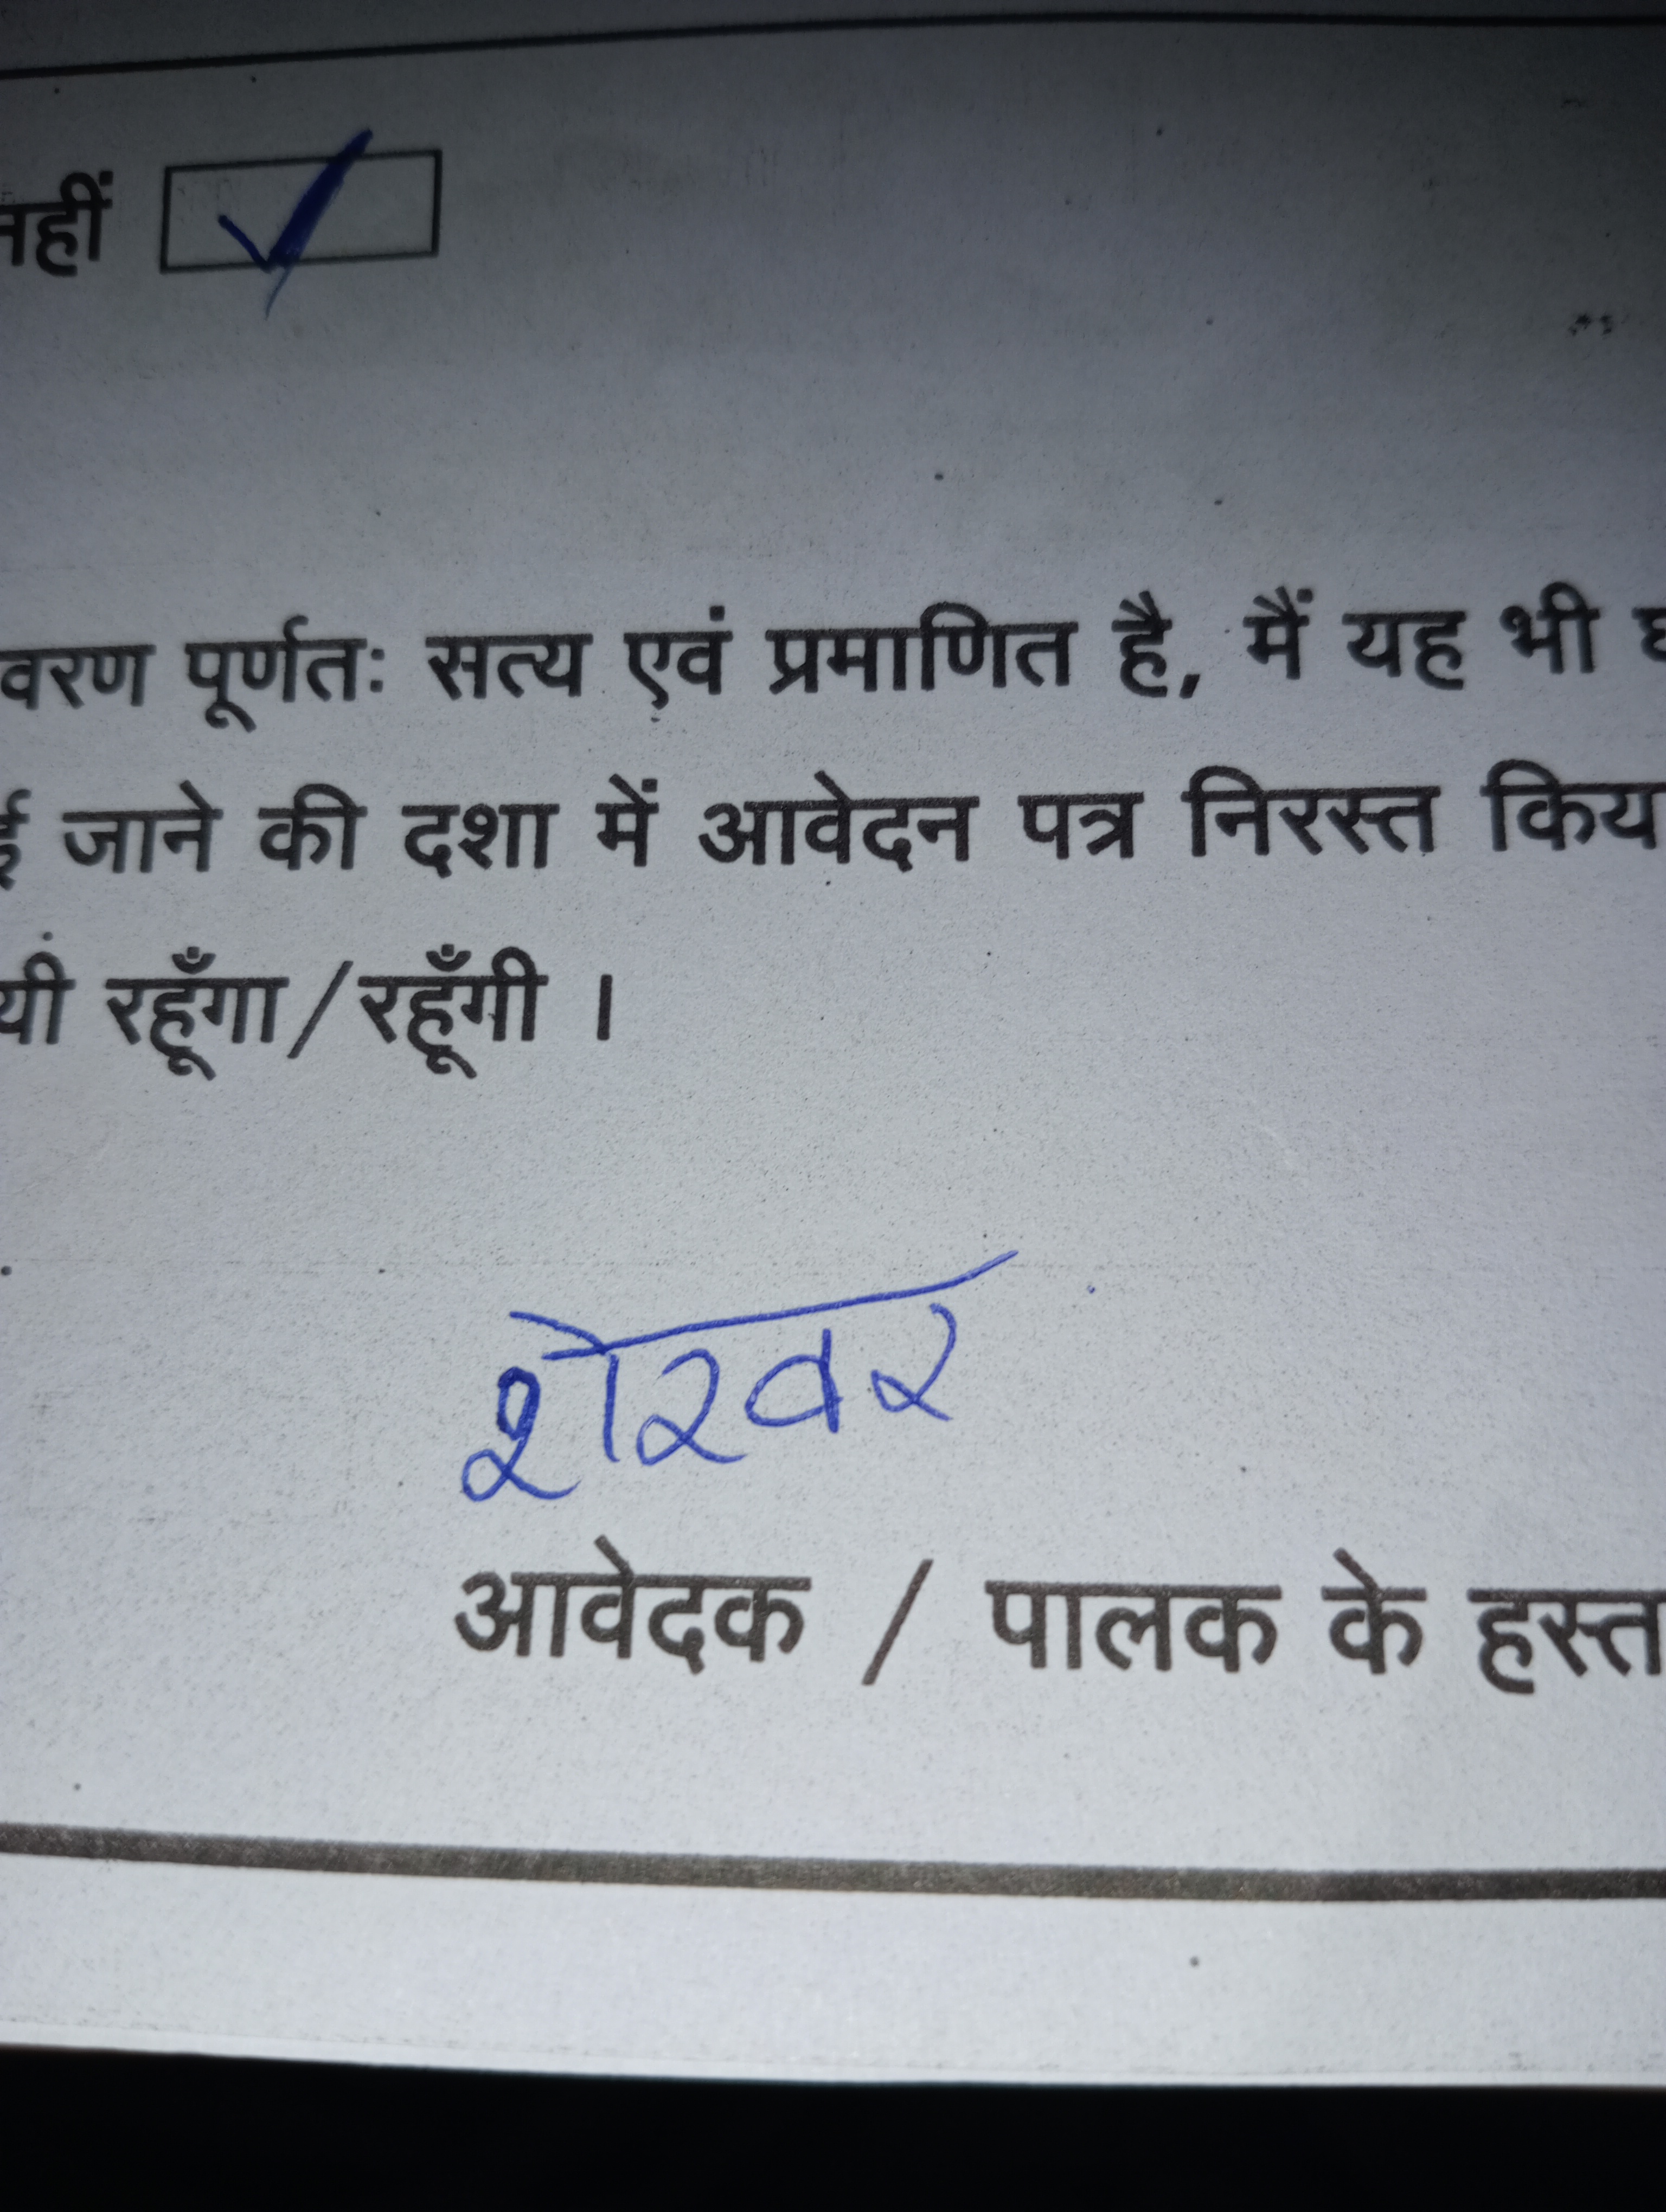 नहीं
वरण पूर्णतः सत्य एवं प्रमाणित है, मैं यह भी
ई जाने की दशा में आवेदन पत्र निरस्त किय
यी रहूँगा/रहूँगी ।
शेखर
आवेदक / पालक के हस्त